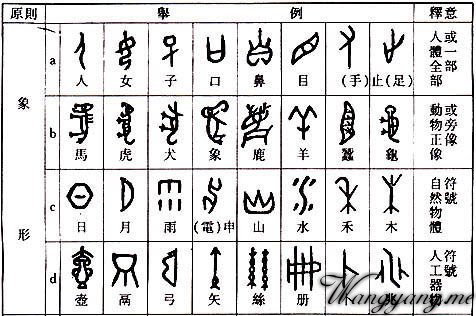 原則 舉例 釋意
象形
a 人 女 子 口 鼻 目 (手) 止(足) 人體全部或一部
b 馬 虎 犬 象 鹿 羊 蠶 龜 動物正像或旁像
c 日 月 雨 (電)申 山 水 禾 木 自然物體符號
d 壺 鬲 弓 矢 絲 册 人工器物符號
Wangyang.me